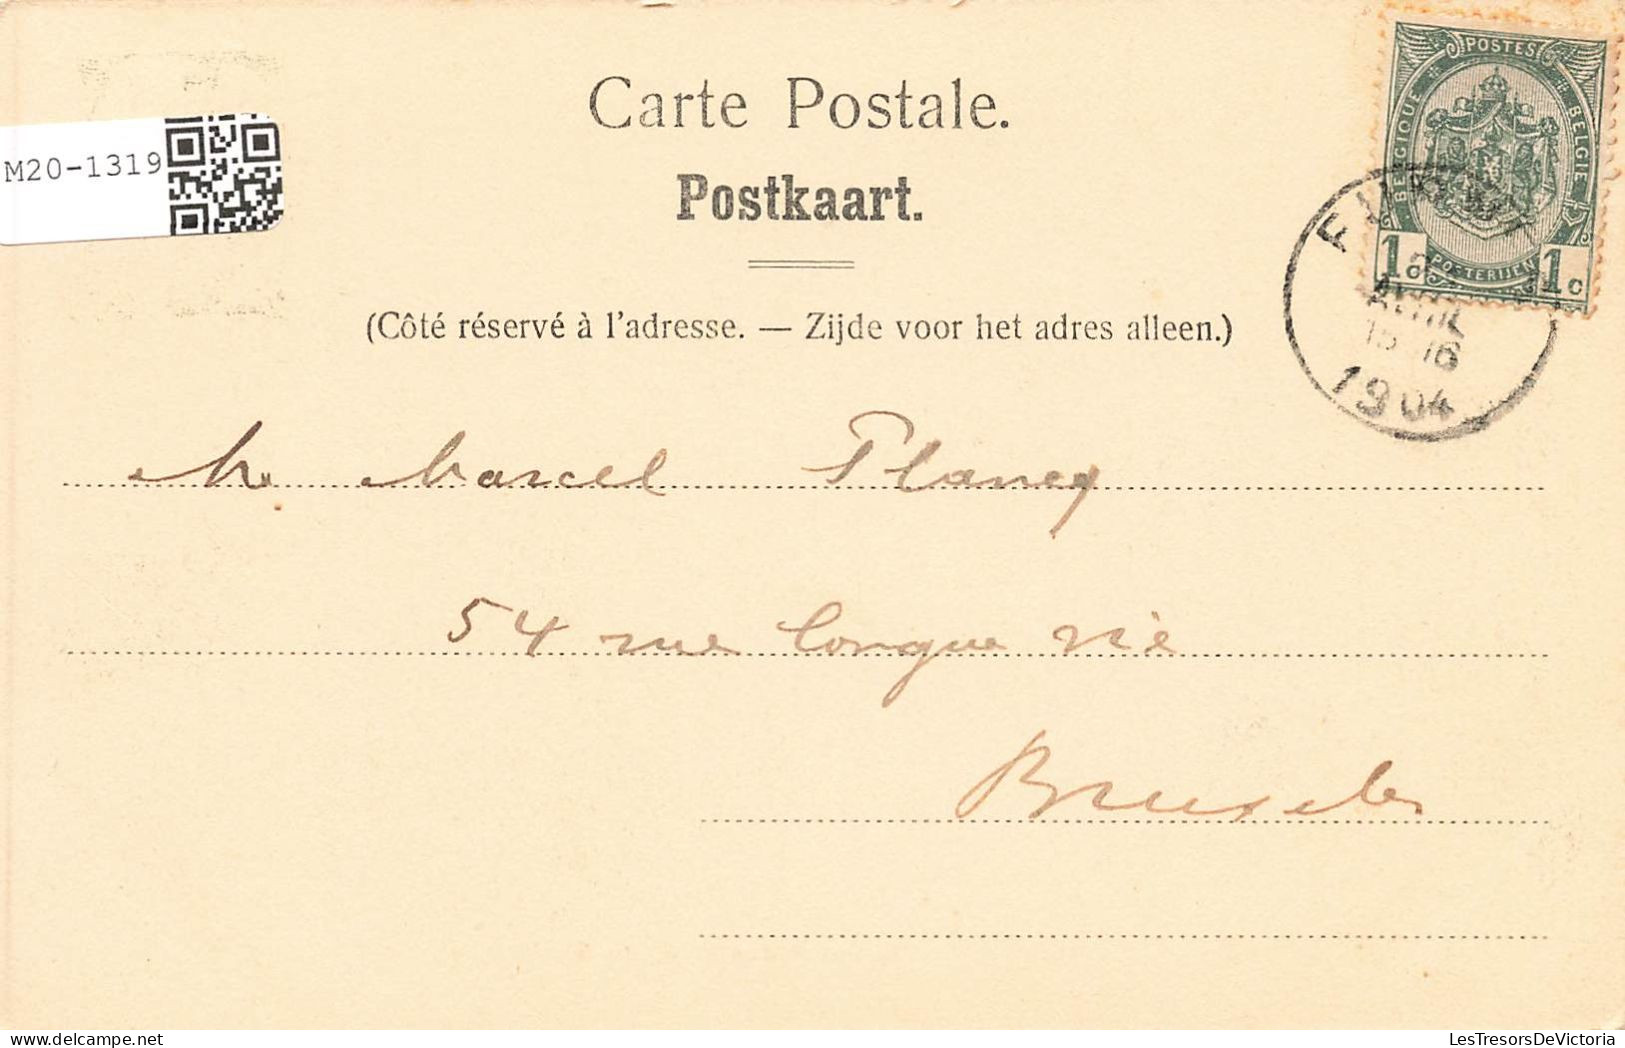 Carte Postale.
Postkaart.
(Côté réservé à l'adresse. — Zijde voor het adres alleen.)
M20-1319
POSTES
BELGIQUE
BELGIE
POSTERIJEN
1c 1c
AVRIL
15 16
1904
M. Marcel Plancq
54 rue longue vie
Bruxelles
LesTresorsDeVictoria